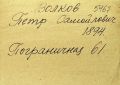 Волков 5769
Петр Самойлович
1894
Пограничная 61